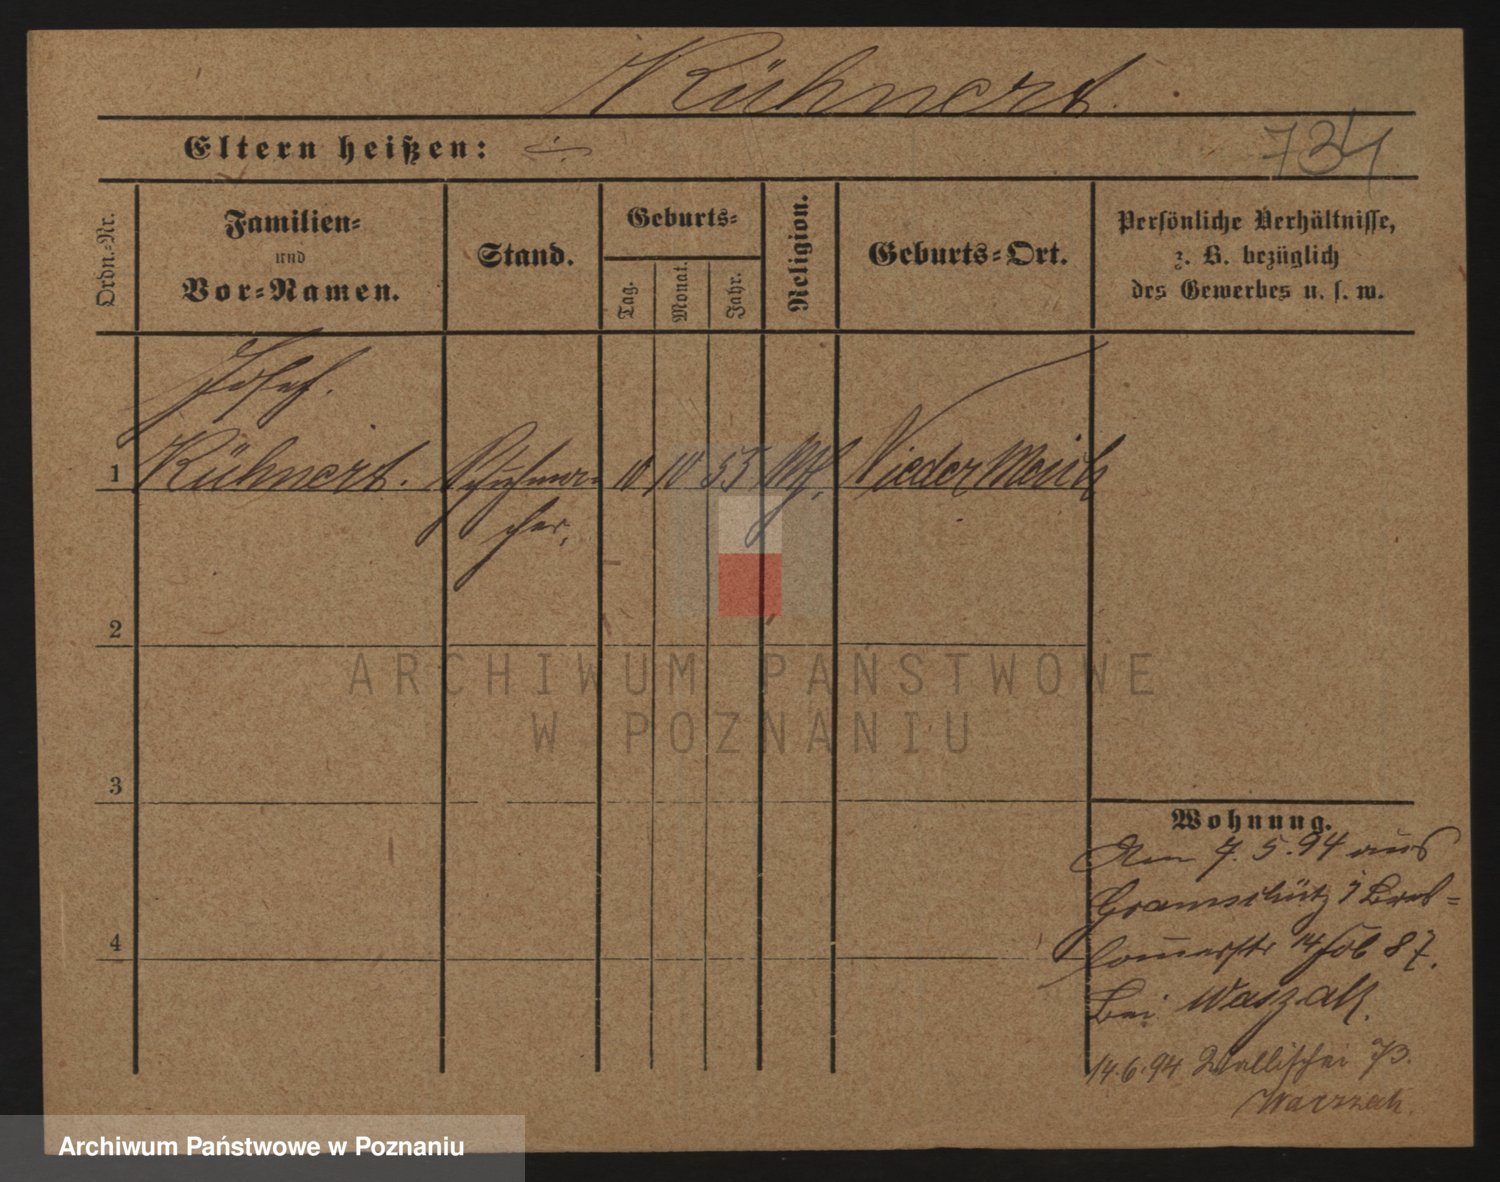 Kühnert.
Eltern heißen: ÷
734
Ordn.-Nr.
Familien-
und
Vor-Namen.
Stand.
Geburts-
Tag.
Monat.
Jahr.
Religion.
Geburts-Ort.
Persönliche Verhältnisse,
z. B. bezüglich
des Gewerbes u. s. w.
Josef.
1 Kühnert. Schuhma- 10 10 55 Nieder
cher,
2
3
4
Wohnung.
7. 5. 94 aus
Gramschütz
87.
Bei Waszak.
14.6.94 Wallischei 73.
ARCHIWUM PAŃSTWOWE
W POZNANIU
Archiwum Państwowe w Poznaniu